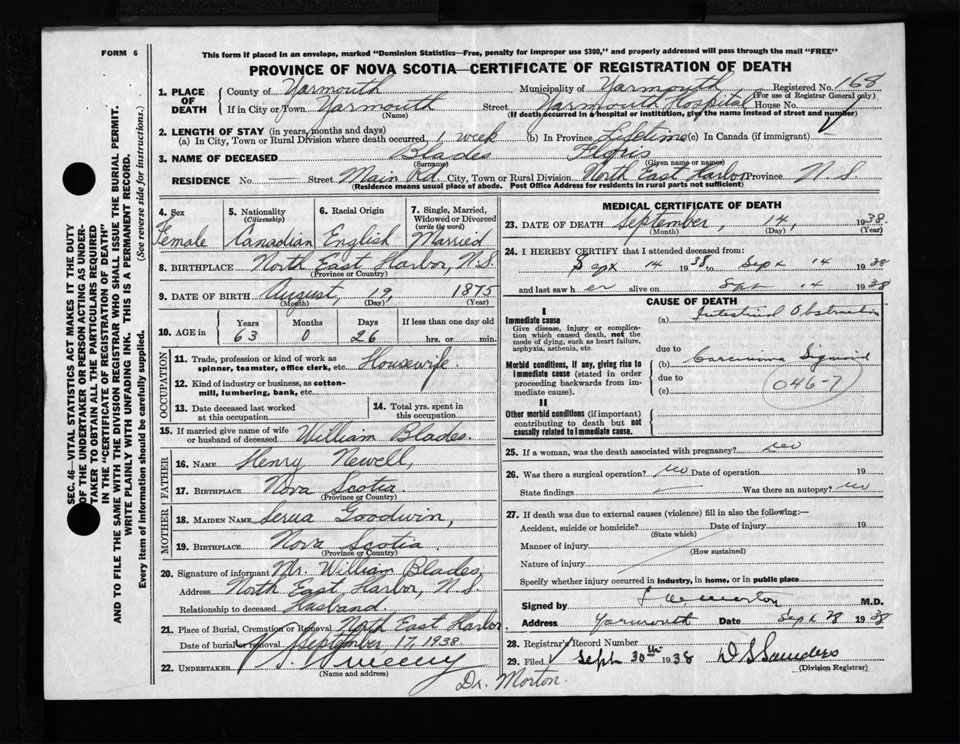 FORM 6
This form if placed in an envelope, marked "Dominion Statistics—Free, penalty for improper use $300," and properly addressed will pass through the mail "FREE"
PROVINCE OF NOVA SCOTIA—CERTIFICATE OF REGISTRATION OF DEATH
SEC. 46—VITAL STATISTICS ACT MAKES IT THE DUTY
OF THE UNDERTAKER OR PERSON ACTING AS UNDER-
TAKER TO OBTAIN ALL THE PARTICULARS REQUIRED
IN THE "CERTIFICATE OF REGISTRATION OF DEATH"
AND TO FILE THE SAME WITH THE DIVISION REGISTRAR WHO SHALL ISSUE THE BURIAL PERMIT.
WRITE PLAINLY WITH UNFADING INK. THIS IS A PERMANENT RECORD.
Every item of information should be carefully supplied. (See reverse side for instructions.)
1. PLACE OF DEATH County of Yarmouth Municipality of Yarmouth Registered No. 168
(For use of Registrar General only)
If in City or Town Yarmouth Street Yarmouth Hospital House No.
(Name) (If death occurred in a hospital or institution, give the name instead of street and number)
2. LENGTH OF STAY (in years, months and days)
(a) In City, Town or Rural Division where death occurred, 1 week (b) In Province Lifetime (c) In Canada (if immigrant)
3. NAME OF DECEASED Blades
(Surname) (Given name or names)
RESIDENCE No. Street Main Rd. City, Town or Rural Division North East Harbor Province N.S.
(Residence means usual place of abode. Post Office Address for residents in rural parts not sufficient)
4. Sex 5. Nationality (Citizenship) 6. Racial Origin 7. Single, Married, Widowed or Divorced (write the word)
Female Canadian English Married
8. BIRTHPLACE North East Harbor, N.S.
(Province or Country)
9. DATE OF BIRTH August, 19, 1875
(Month) (Day) (Year)
10. AGE in Years Months Days If less than one day old
63 0 26 hrs. or min.
OCCUPATION
11. Trade, profession or kind of work as spinner, teamster, office clerk, etc. Housewife.
12. Kind of industry or business, as cotton-mill, lumbering, bank, etc.
13. Date deceased last worked at this occupation
14. Total yrs. spent in this occupation
15. If married give name of wife or husband of deceased William Blades.
FATHER
16. NAME Henry Newell,
17. BIRTHPLACE Nova Scotia.
(Province or Country)
MOTHER
18. MAIDEN NAME Goodwin,
19. BIRTHPLACE Nova Scotia.
(Province or Country)
20. Signature of informant Mr. William Blades,
Address North East Harbor, N.S.
Relationship to deceased Husband.
21. Place of Burial, Cremation or Removal North East Harbor
Date of burial or removal September 17, 1938.
22. UNDERTAKER Sweeny
(Name and address)
Dr. Morton.
MEDICAL CERTIFICATE OF DEATH
23. DATE OF DEATH September, 14, 1938.
(Month) (Day) (Year)
24. I HEREBY CERTIFY that I attended deceased from:
Sept 14 1938 to Sept 14 1938
and last saw her alive on Sept 14 1938
CAUSE OF DEATH
I
Immediate cause
Give disease, injury or complication which caused death, not the mode of dying, such as heart failure, asphyxia, asthenia, etc.
(a) Intestinal Obstruction
due to
Morbid conditions, if any, giving rise to immediate cause (stated in order proceeding backwards from immediate cause).
(b) Carcinoma Sigmoid
due to
(c) 046-7
II
Other morbid conditions (if important) contributing to death but not causally related to immediate cause.
25. If a woman, was the death associated with pregnancy? no
26. Was there a surgical operation? no Date of operation 19
State findings Was there an autopsy? no
27. If death was due to external causes (violence) fill in also the following:—
Accident, suicide or homicide? Date of injury 19
(State which)
Manner of injury
(How sustained)
Nature of injury
Specify whether injury occurred in industry, in home, or in public place
Signed by Morton M.D.
Address Yarmouth Sept 28 1938
28. Registrar's Record Number
29. Filed Sept 30th 1938 D S Saunders
(Division Registrar)